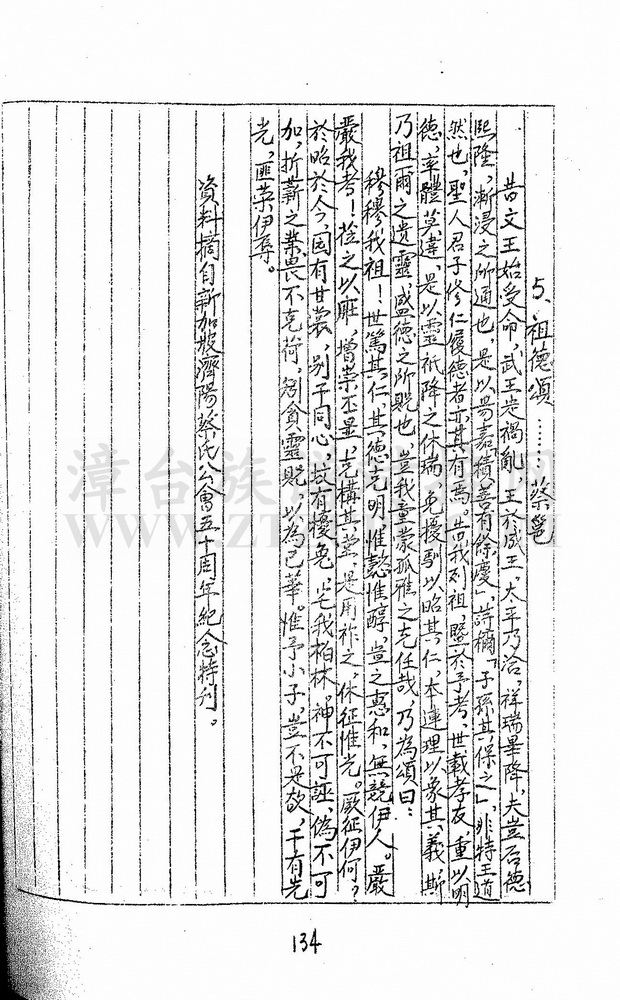 5、祖德頌……蔡邕
昔文王始受命，武王定禍亂，王於成王，太平乃洽，祥瑞畢降，夫豈后德
熙隆，漸浸之所通也，是以易嘉「積善有餘慶」，詩稱「子孫其保之」，非特王道
然也，聖人君子修仁履德者亦其有焉。昔我列祖，暨於予考，世載孝友，重以明
德，率體莫違，是以靈祇降之休瑞，兔擾馴以昭其仁，木連理以象其義，斯
乃祖爾之遺靈，盛德之所貺也，豈我童蒙孤稚之克任哉，乃為頌曰：
穆穆我祖！世篤其仁，其德克明，惟懿惟醇，豈之惠和，無競伊人。嚴
嚴我考！蒞之以莊，增崇丕顯，克構其堂，是用祚之，休徵惟光。厥徵伊何？
於昭於今，園有甘棠，別于同心，坟有擾兔，宅我柏林。神不可誣，偽不可
加，折薪之業畏不克荷，矧貪靈貺，以為已華。惟予小子，豈不是欲，干有先
光，匪榮伊辱。
資料摘自新加坡濟陽蔡氏公會五十周年紀念特刊。
134